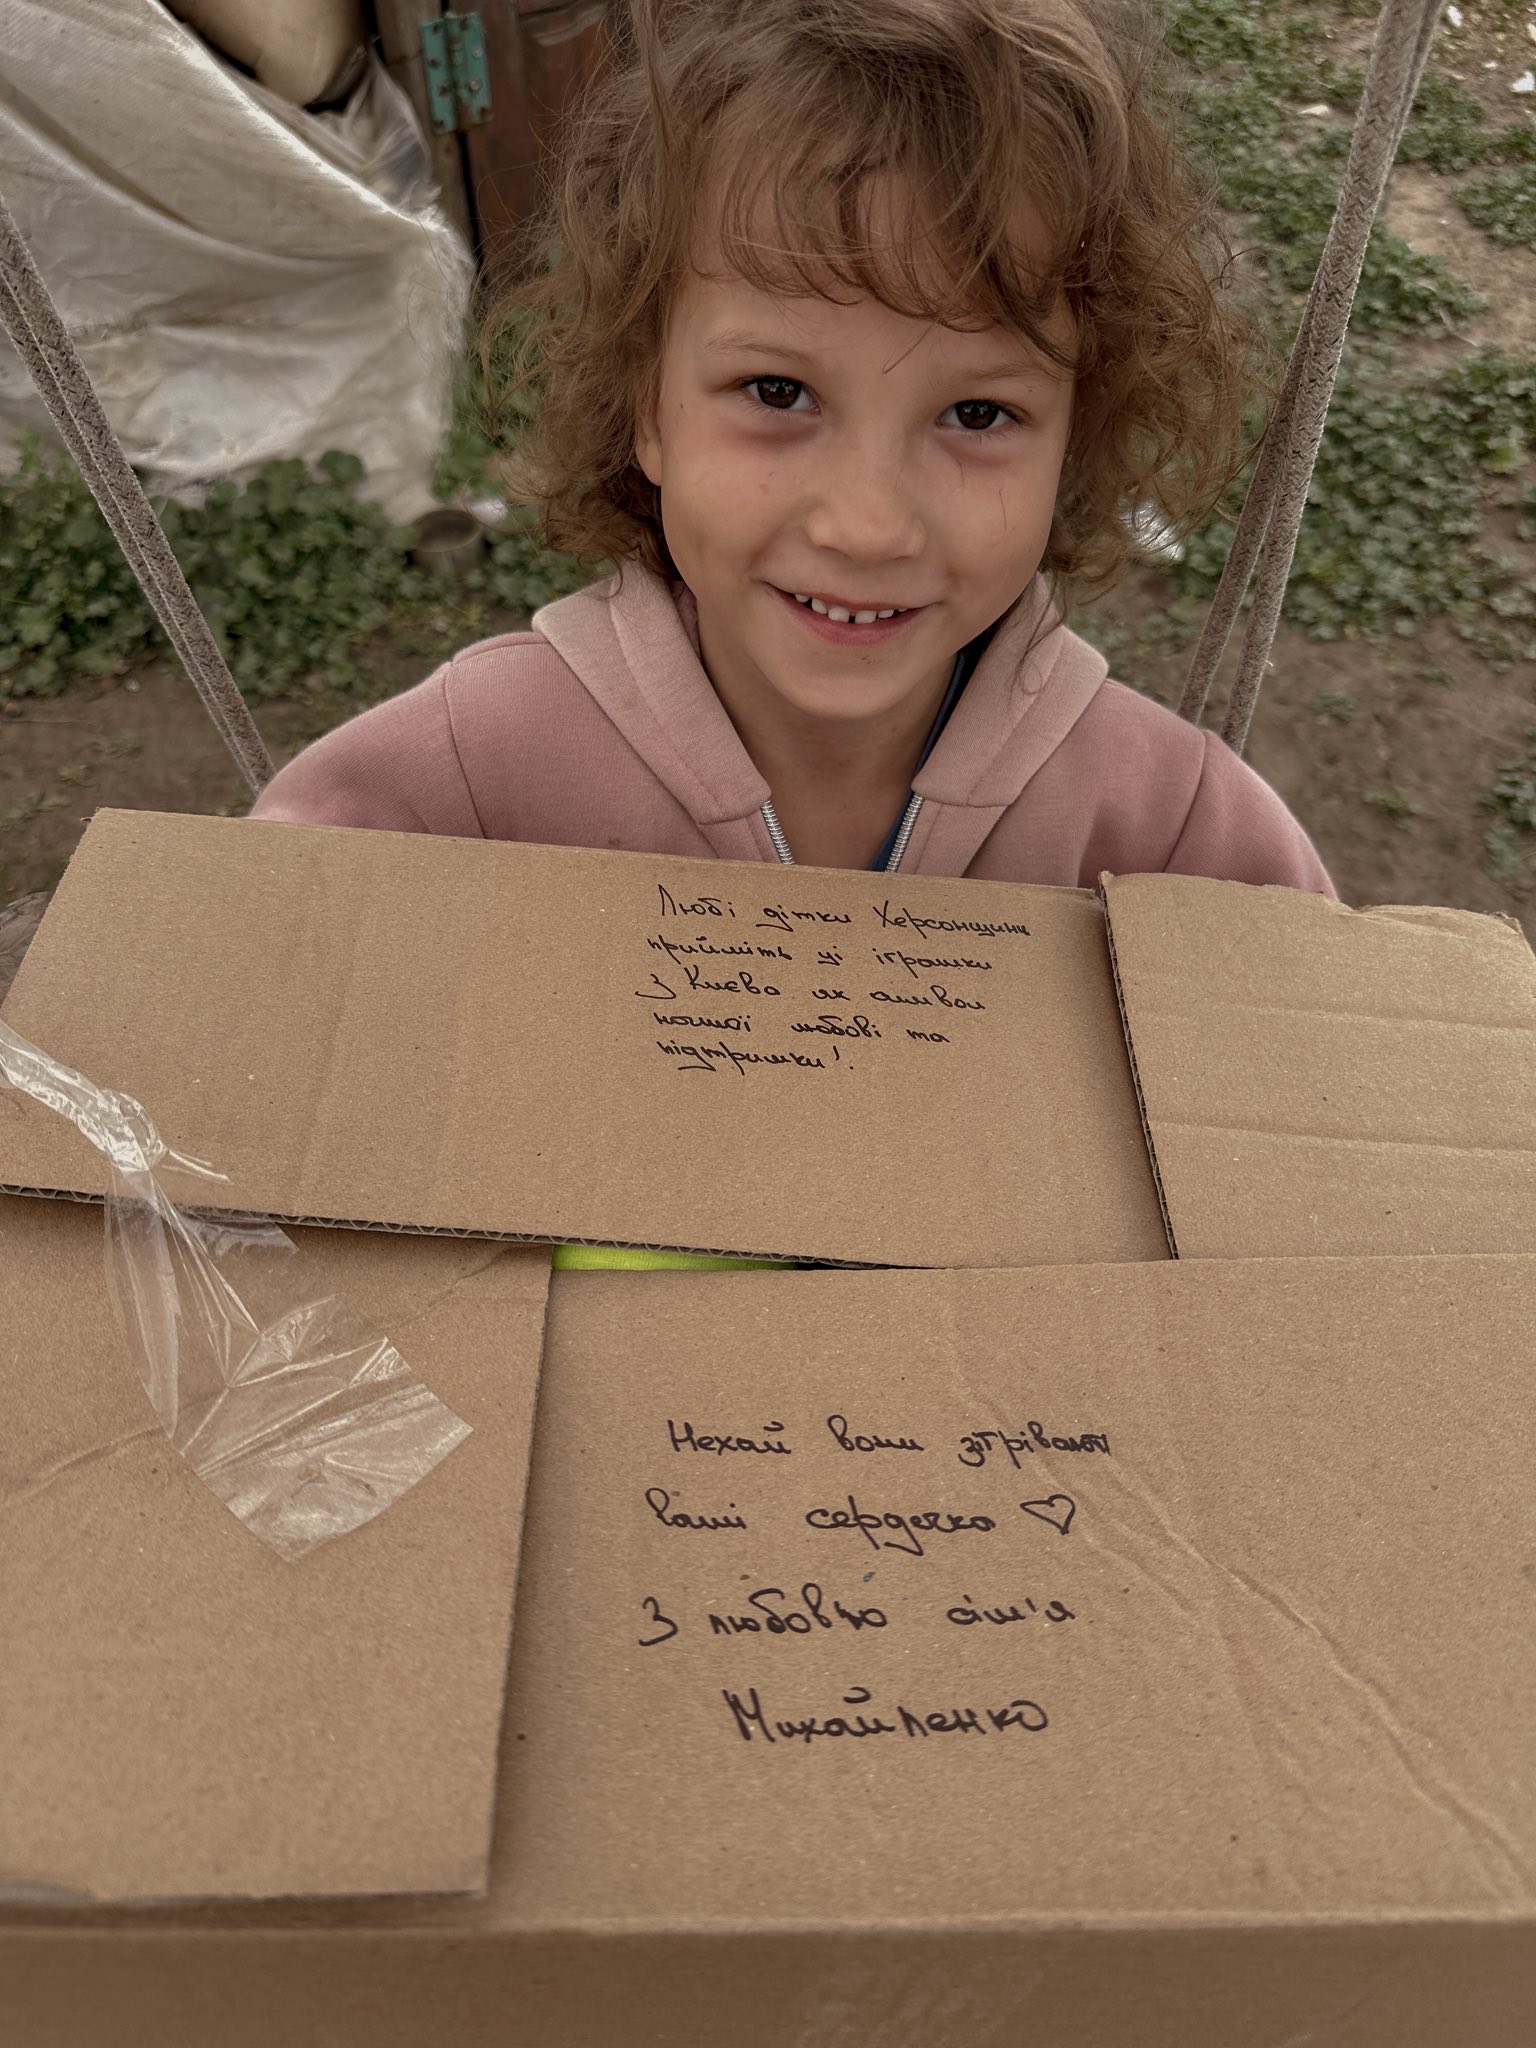 Любі дітки Херсонщини
прийміть ці іграшки
з Києва як символ
нашої любові та
підтримки!
Нехай вони зігрівають
ваші сердечка ♡
З любов'ю сім'я
Михайленко